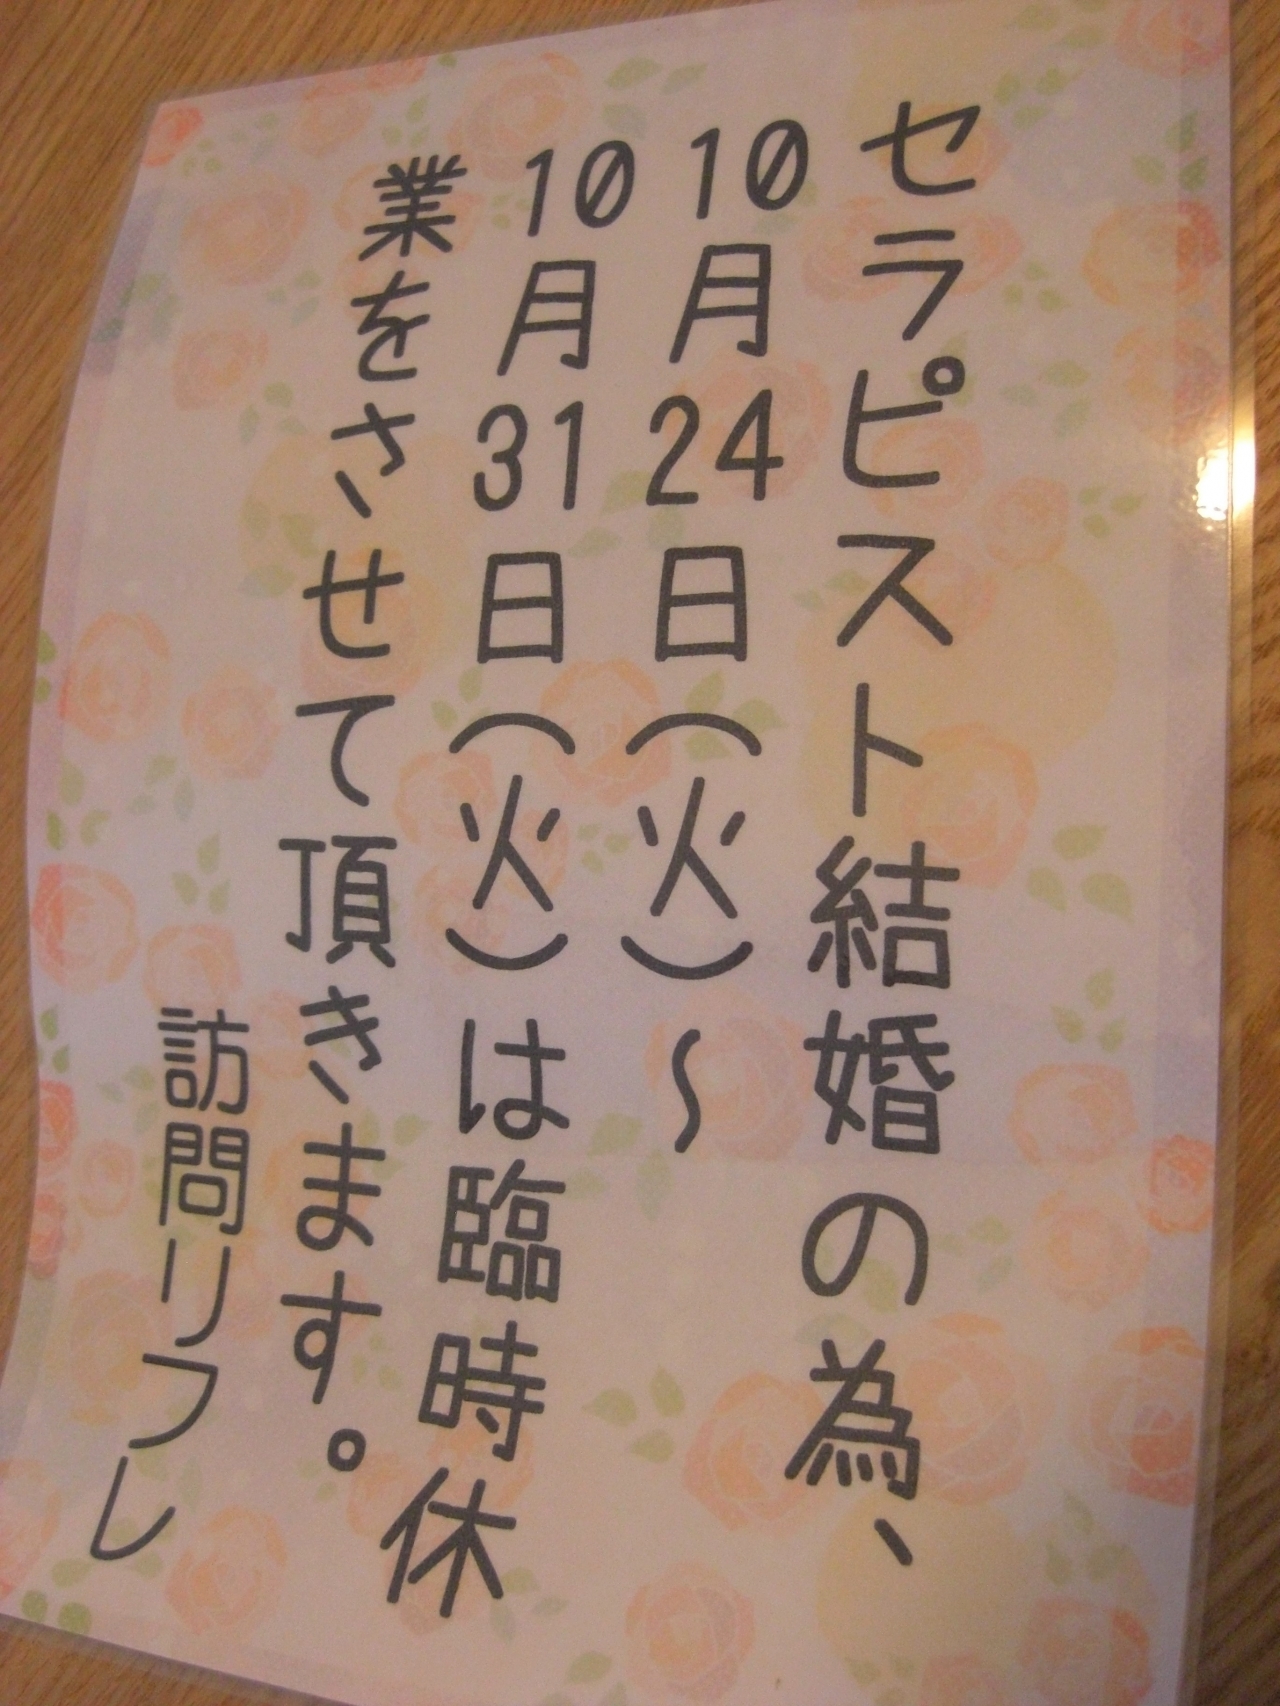 セラピスト結婚の為、
10月24日(火)～
10月31日(火)は臨時休
業をさせて頂きます。
訪問リフレ